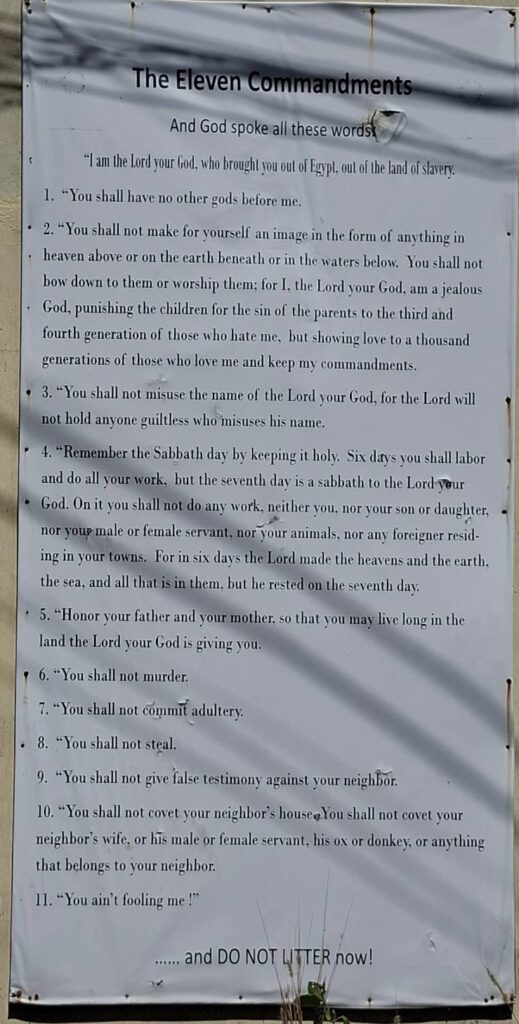 The Eleven Commandments
And God spoke all these words:
"I am the Lord your God, who brought you out of Egypt, out of the land of slavery.
1. "You shall have no other gods before me.
2. "You shall not make for yourself an image in the form of anything in
heaven above or on the earth beneath or in the waters below. You shall not
bow down to them or worship them; for I, the Lord your God, am a jealous
God, punishing the children for the sin of the parents to the third and
fourth generation of those who hate me, but showing love to a thousand
generations of those who love me and keep my commandments.
3. "You shall not misuse the name of the Lord your God, for the Lord will
not hold anyone guiltless who misuses his name.
4. "Remember the Sabbath day by keeping it holy. Six days you shall labor
and do all your work, but the seventh day is a sabbath to the Lord your
God. On it you shall not do any work, neither you, nor your son or daughter,
nor your male or female servant, nor your animals, nor any foreigner resid-
ing in your towns. For in six days the Lord made the heavens and the earth,
the sea, and all that is in them, but he rested on the seventh day.
5. "Honor your father and your mother, so that you may live long in the
land the Lord your God is giving you.
6. "You shall not murder.
7. "You shall not commit adultery.
8. "You shall not steal.
9. "You shall not give false testimony against your neighbor.
10. "You shall not covet your neighbor's house. You shall not covet your
neighbor's wife, or his male or female servant, his ox or donkey, or anything
that belongs to your neighbor.
11. "You ain't fooling me !"
...... and DO NOT LITTER now!